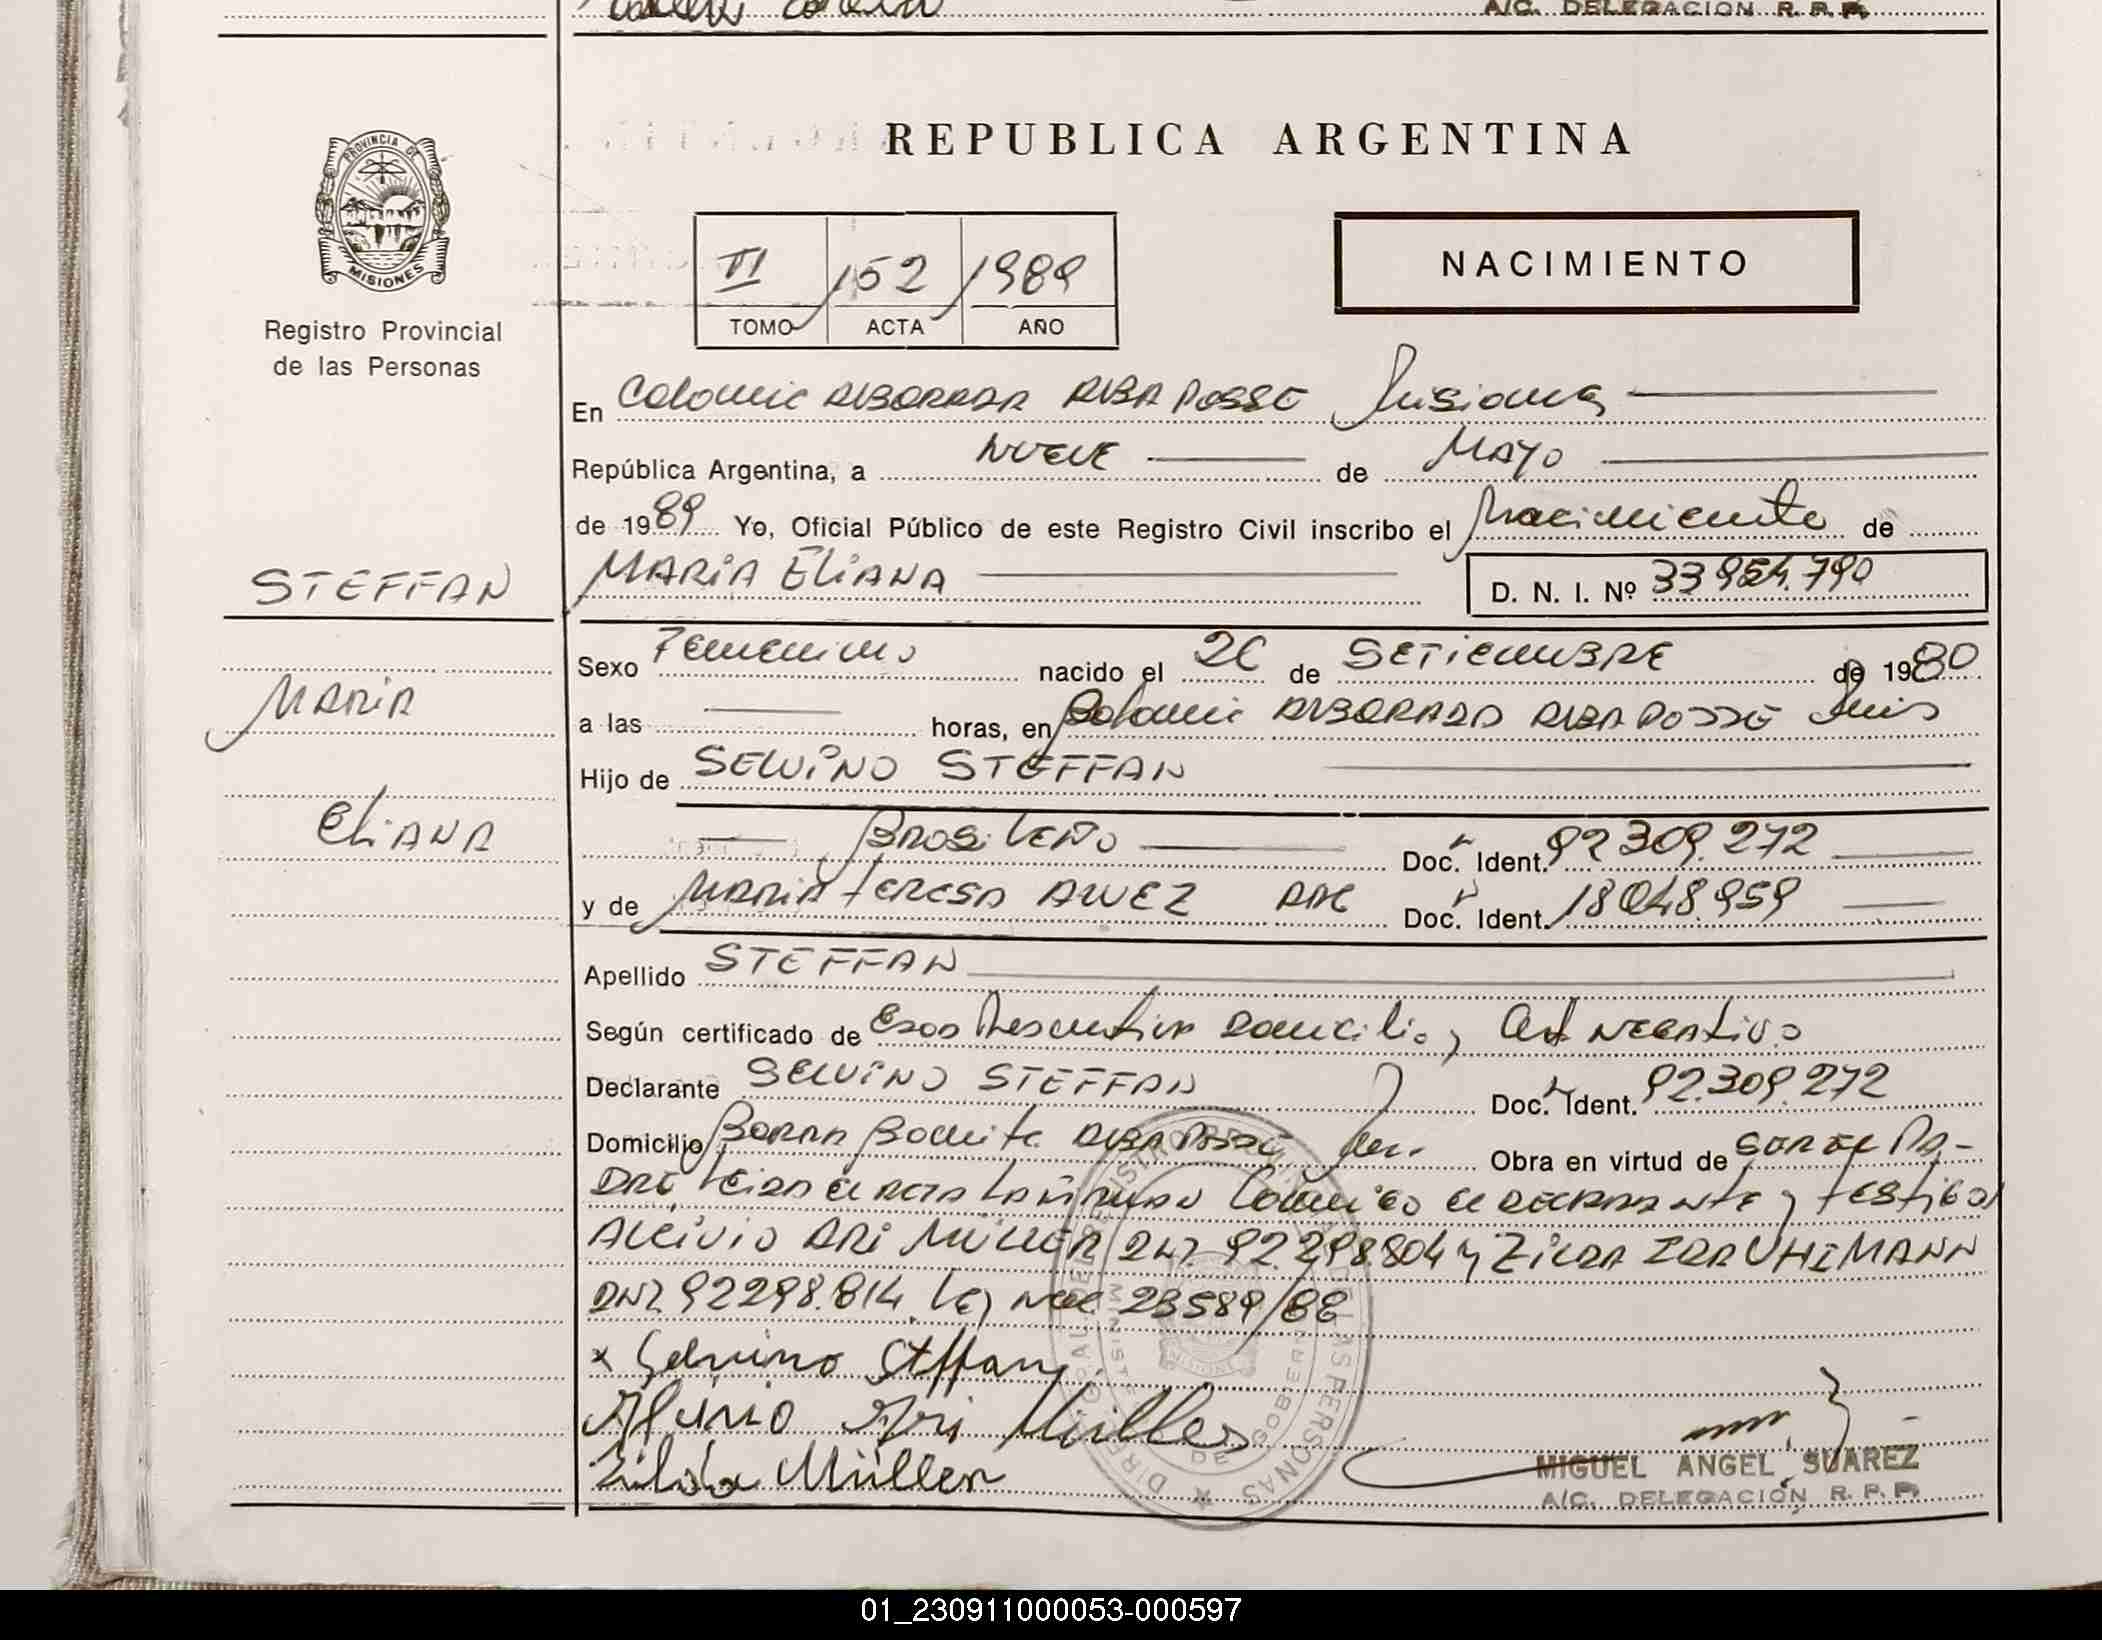 A/C. DELEGACION R. P. P.
PROVINCIA DE
MISIONES
Registro Provincial
de las Personas
REPUBLICA ARGENTINA
VI 152 1989
TOMO ACTA AÑO
NACIMIENTO
En Colonia ALBORADA ALBA POSSE Misiones
República Argentina, a NUEVE de MAYO
de 1989 Yo, Oficial Público de este Registro Civil inscribo el Nacimiento de
STEFFAN
MARIA ELIANA D. N. I. Nº 33.954.790
Sexo Femenino nacido el 26 de SETIEMBRE de 1980
MARIA
a las horas, en Colonia ALBORADA ALBA POSSE Mis
Hijo de SELVINO STEFFAN
ELIANA
BRASILEÑO Doc. Ident. 92.309.272
y de MARIA TERESA ALVEZ ARG Doc. Ident. 18.048.959
Apellido STEFFAN
Según certificado de Domicilio y Cert NEGATIVO
Declarante SELVINO STEFFAN Doc. Ident. 92.309.272
Domicilio Bonita ALBA POSSE Obra en virtud de SER EL PA-
DRE Leida el ACTA la firman conmigo el DECLARANTE y testigos
ALCIVIO ARI MÜLLER DNI. 92.298.804 y ZILDA IDA UHLMANN
DNI 92298.814 Ley NAC 23589/88
x Selvino Steffan
Ari Müller
Zilda Müller
MIGUEL ANGEL SUAREZ
A/C. DELEGACIÓN R. P. P.
01_230911000053-000597